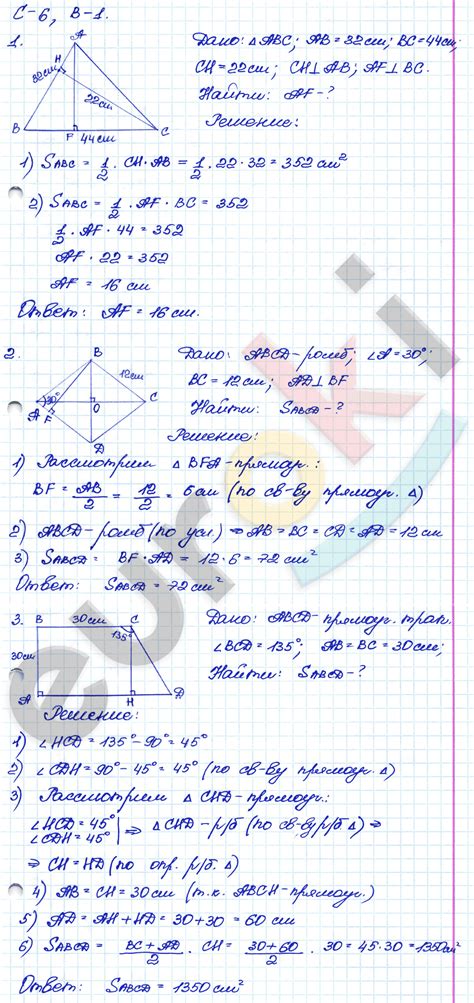 С-6, В-1.
1.
A
H
32см
22см
B
F
44см
C
Дано: △ABC; AB = 32см; BC = 44см;
CH = 22см; CH⊥AB; AF⊥BC.
Найти: AF - ?
Решение:
1) SABC = 1/2 · CH · AB = 1/2 · 22 · 32 = 352 см²
2) SABC = 1/2 · AF · BC = 352
1/2 · AF · 44 = 352
AF · 22 = 352
AF = 16 см
Ответ: AF = 16 см.
2.
B
12см
30°
A
F
O
C
D
Дано: ABCD - ромб; ∠A = 30°;
BC = 12 см; AD⊥BF
Найти: SABCD - ?
Решение:
1) Рассмотрим △ BFA - прямоуг.:
BF = AB/2 = 12/2 = 6 см (по св-ву прямоуг. △)
2) ABCD - ромб (по усл.) ⇒ AB = BC = CD = AD = 12 см
3) SABCD = BF · AD = 12 · 6 = 72 см²
Ответ: SABCD = 72 см²
3.
B
30см
C
135°
30см
A
H
D
Дано: ABCD - прямоуг. трап.
∠BCD = 135°; AB = BC = 30см;
Найти: SABCD - ?
Решение:
1) ∠HCD = 135° - 90° = 45°
2) ∠CDH = 90° - 45° = 45° (по св-ву прямоуг. △)
3) Рассмотрим △ CHD - прямоуг.:
∠HCD = 45°
∠CDH = 45° | ⇒ △ CHD - р/б (по св-ву р/б △) ⇒
⇒ CH = HD (по опр. р/б. △)
4) AB = CH = 30 см (т.к. ABCH - прямоуг.)
5) AD = AH + HD = 30 + 30 = 60 см
6) SABCD = BC + AD/2 · CH = 30 + 60/2 · 30 = 45 · 30 = 1350 см²
Ответ: SABCD = 1350 см²
euroki